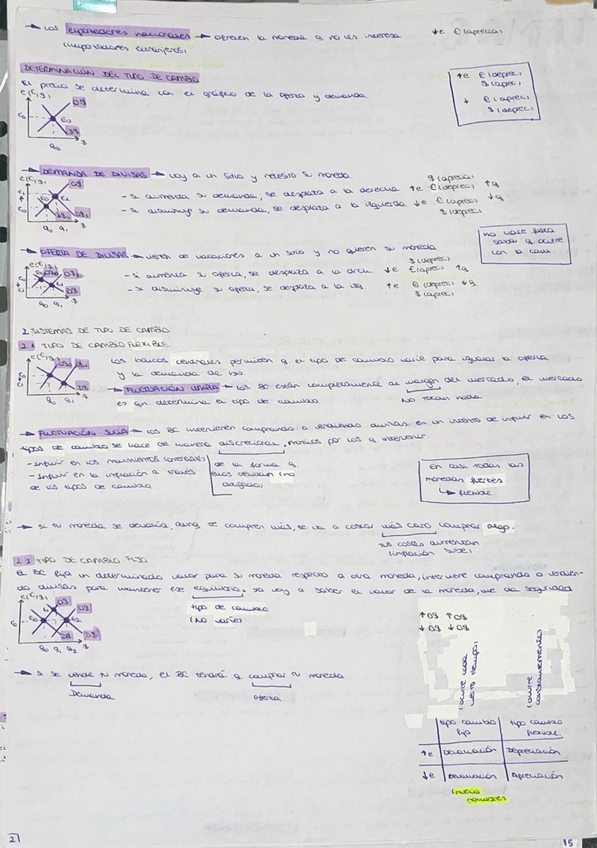 → Los exportadores nacionales → ofrecen la moneda q no les interesa ↓e € (aprecia)
(importadores extranjeros)
DETERMINACIÓN DEL TIPO DE CAMBIO
El precio se determina con el gráfico de la oferta y demanda.
↑e € (deprec)
$ (aprec)
↓ € (aprec)
$ (deprec)
→ DEMANDA DE DIVISAS → voy a un sitio y necesito su moneda. $ (aprec)
- si aumenta su demanda, se desplaza a la derecha ↑e € (deprec) ↑q
- si disminuye su demanda, se desplaza a la izquierda ↓e € (aprec) ↓q
$ (deprec)
→ OFERTA DE DIVISAS → vienen de vacaciones a un sitio y no quieren su moneda
$ (deprec)
- si aumenta su oferta, se desplaza a la drch. ↓e € (aprec) ↑q
- si disminuye su oferta, se desplaza a la izq. ↑e € (deprec) ↓q
$ (aprec)
no hace falta
saber q ocurre
con la cant.
2. SISTEMAS DE TIPO DE CAMBIO
2.1 TIPO DE CAMBIO FLEXIBLE
Los bancos centrales permiten q el tipo de cambio varíe para igualar la oferta
y la demanda de
→ FLUCTUACIÓN LIMPIA → los BC están completamente al margen del mercado, el mercado
es qn determina el tipo de cambio No tocan nada
→ FLUCTUACIÓN SUCIA → los BC intervienen comprando o vendiendo divisas en un intento de influir en los
tipos de cambio se hace de manera discrecional, motivos por los q intervenir:
- Influir en los movimientos comerciales
- Influir en la inflación a través
de los tipos de cambio
de la forma q
ellos vean (no
obligados)
En casi todas las
monedas fuertes
↳ flexible.
→ si tu moneda se devalúa, aunq te compren más, te va a costar más caro comprar algo.
tus costes aumentan
(inflación sube)
2.2 TIPO DE CAMBIO FIJO
El BC fija un determinado valor para su moneda respecto a otra moneda, interviene comprando o vendien-
do divisas para mantener ese equilibrio. Ya voy a saber el valor de la moneda, me da seguridad
tipo de cambio
(No varíe)
↑D$ ↑O$
↓D$ ↓O$
(ocurre cada
cierto tiempo)
(ocurre
constantemente)
→ si se vende tu moneda, el BC tendrá q comprar tu moneda
Demanda oferta
tipo cambio fijo tipo cambio flexible
↑e Devaluación Depreciación
↓e Apreciación
2
15